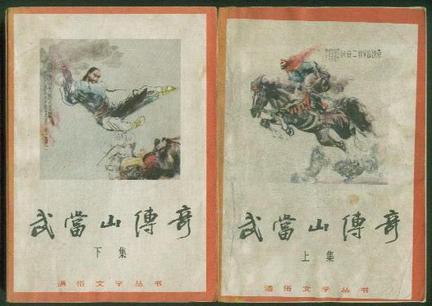 武當山傳奇
下集
通俗文学丛书
武當山傳奇
上集
通俗文学丛书